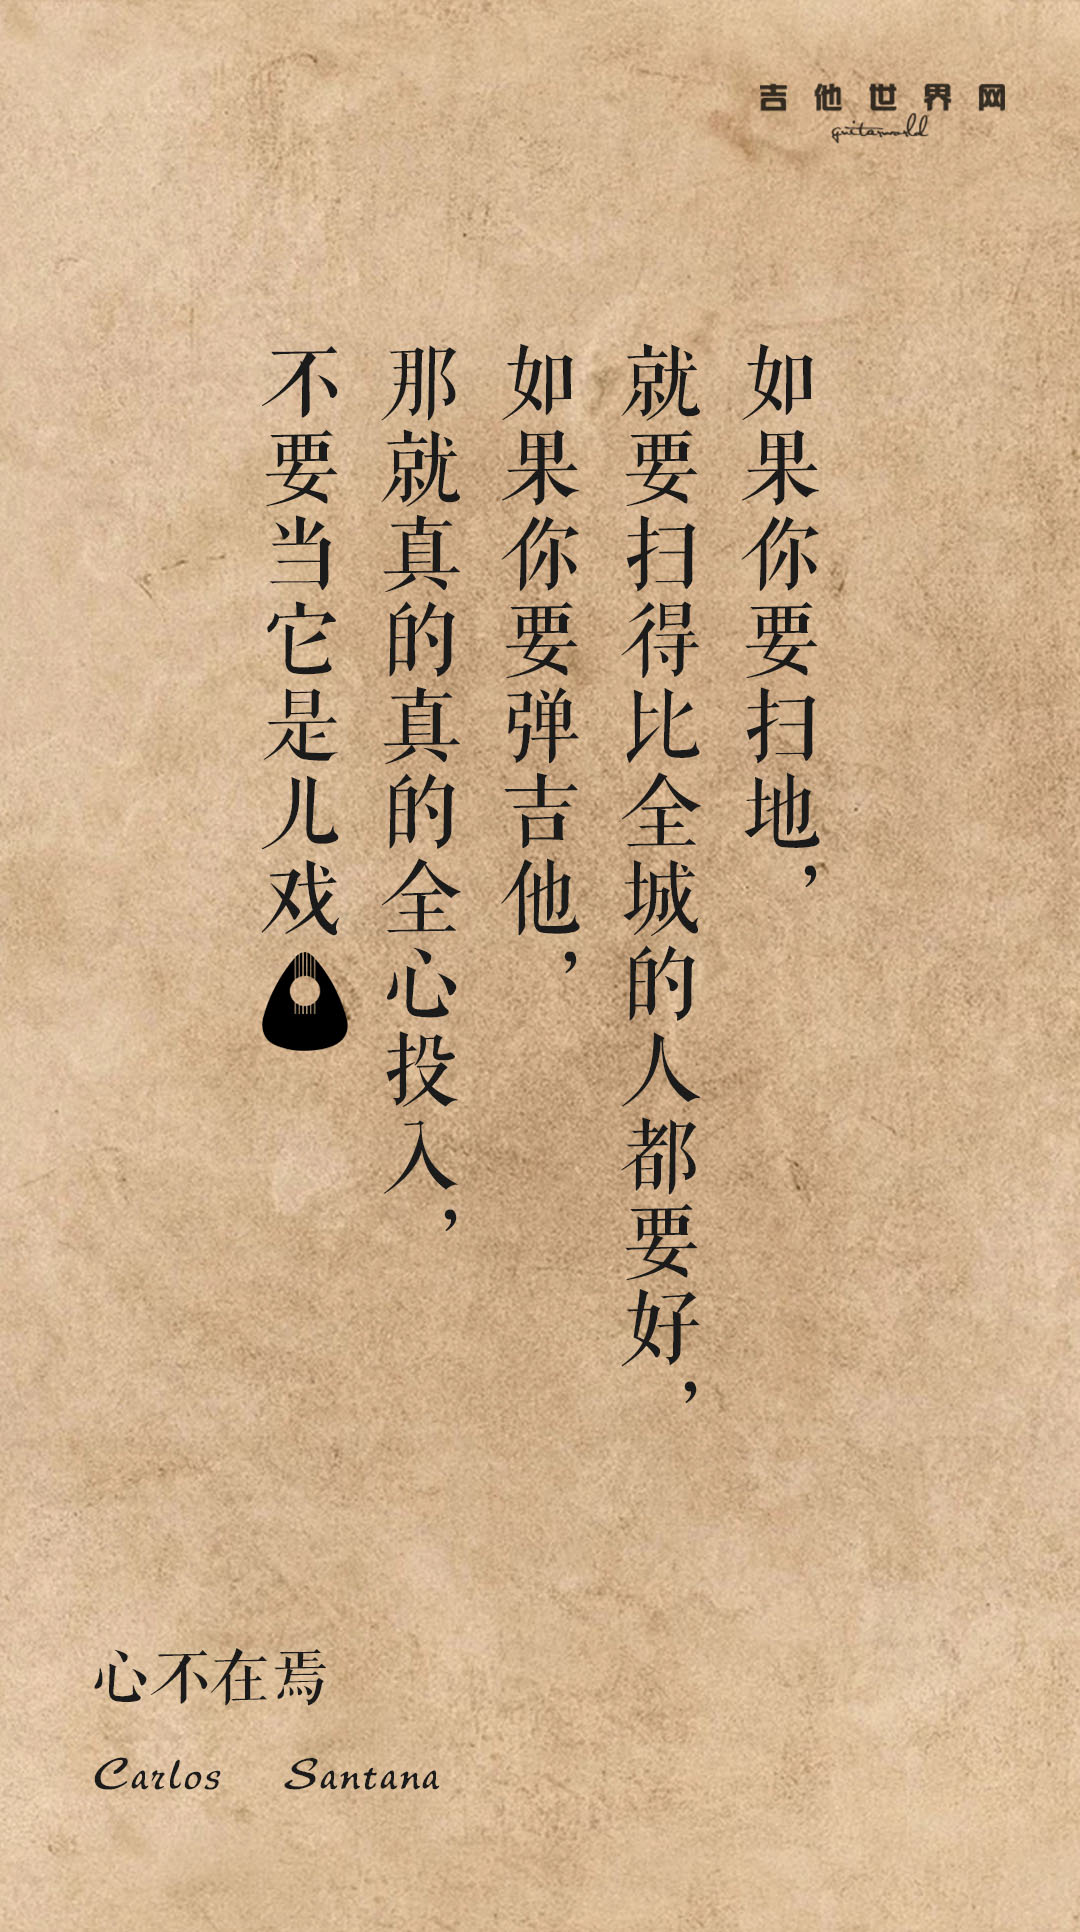 吉他世界网
guitarworld
如果你要扫地，
就要扫得比全城的人都要好，
如果你要弹吉他，
那就真的真的全心投入，
不要当它是儿戏
心不在焉
Carlos Santana